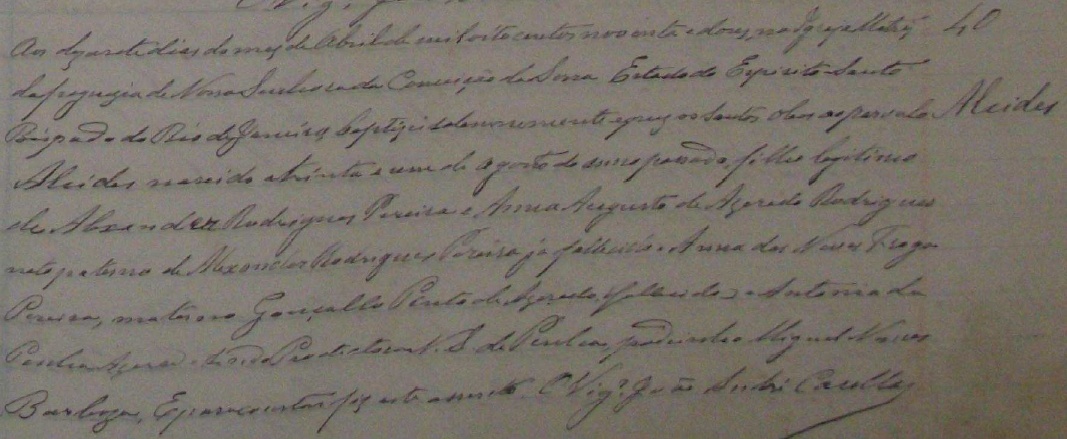 Aos dezasete dias do mez de Abril de mil oito centos noventa e dous, na Igreja Matriz 40
da freguezia de Nossa Senhora da Conceição da Serra Estado do Espirito-Santo
Bispado do Rio de Janeiro, baptizei solemnemente e puz os santos oleos ao parvulo Alcides
Alcides nascido a trinta e um de agosto do anno passado, filho legitimo
de Alexandre Rodrigues Pereira e Anna Augusta de Azeredo Rodrigues
neto paterno de Alexandre Rodrigues Pereira já fallecido e Anna das Neves Fraga
Pereira, materno Gonçallo Pinto de Azeredo, fallecido, e Antonia da
Penha Azeredo. Protectora N. S. da Penha, padrinho Miguel Nunes
Barboza, E para constar fiz este assento. O Vigr.º João André Casella